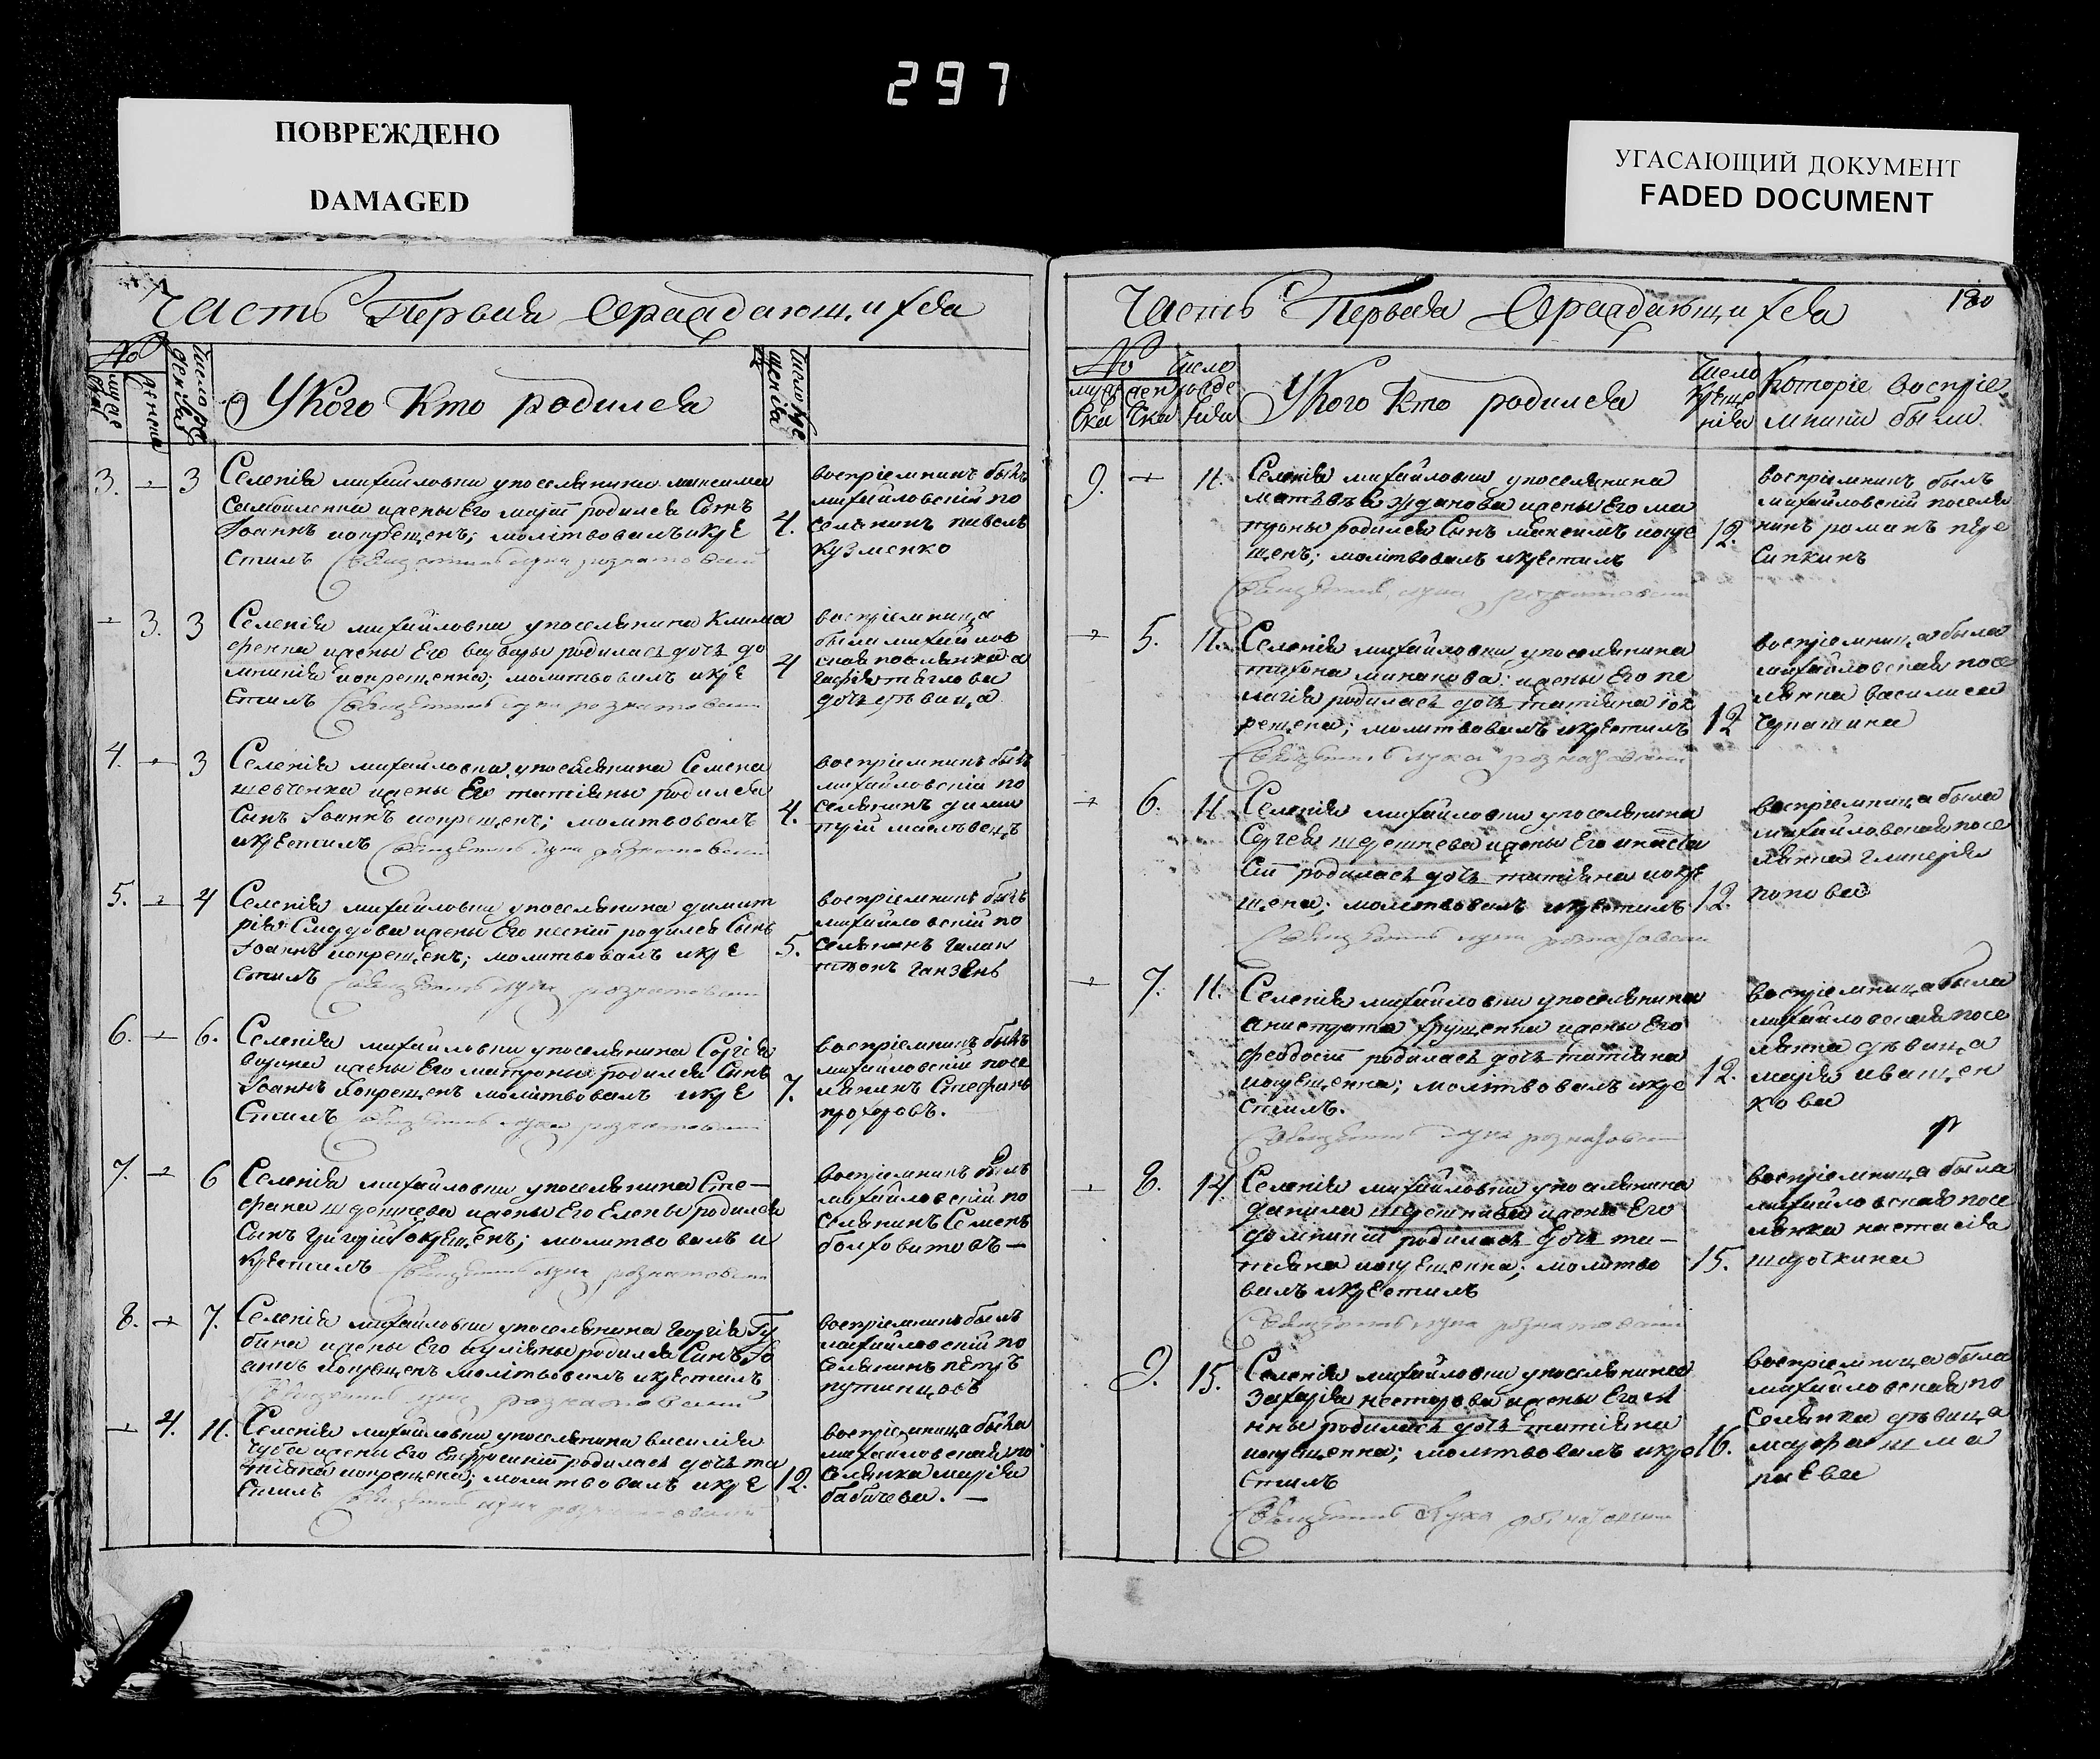 297
ПОВРЕЖДЕНО
DAMAGED
УГАСАЮЩИЙ ДОКУМЕНТ
FADED DOCUMENT
Часть Первая Ораждающихся
№
Число рождения
У кого кто родился
Число крещенія
3. 3
Селенія михайловки упоселянина максима
Самойленка жены Его маріи родился Сынъ
Іоаннъ икрещенъ; молитвовалъ икре
стилъ Священникъ лука розматовскій
4.
воспріемникъ былъ
михайловскій по
селянинъ павелъ
кузменко
3. 3
Селенія михайловки упоселянина Клима
жены Его варвары родилась дочь до
мникія икрещенна; молитвовалъ икре
стилъ Священникъ лука
4
воспріемница
была михайлов
ская поселянка
тяглова
дочь девица
4. 3
Селенія михайловки упоселянина Семена
шевченка жены Его татіяны родился
Сынъ Іоаннъ икрещенъ; молитвовалъ
икрестилъ Священникъ лука
4.
воспріемникъ былъ
михайловскій по
селянинъ дими
трій
5. 4
Селенія михайловки упоселянина димит
рія жены Его родился Сынъ
Іоаннъ икрещенъ; молитвовалъ икре
стилъ Священникъ лука
5.
воспріемникъ былъ
михайловскій по
селянинъ галак
тіонъ ганзенъ
6. 6.
Селенія михайловки упоселянина Сергія
жены Его матроны родился Сынъ
Іоаннъ икрещенъ молитвовалъ икре
стилъ Священникъ лука
7.
воспріемникъ былъ
михайловскій посе
лянинъ Стефанъ
прохоровъ.
7. 6
Селенія михайловки упоселянина Сте-
фана шерешнева жены Его Елены родился
Сынъ григорій икрещенъ; молитвовалъ и
крестилъ Священникъ лука
воспріемникъ былъ
михайловскій по
селянинъ Семенъ
болховитовъ-
8. 7.
Селенія михайловки упоселянина георгія Гу
бина жены Его іуліяны родился Сынъ Іо
аннъ икрещенъ молитвовалъ икрестилъ
Священникъ лука
воспріемникъ былъ
михайловскій по
селянинъ петръ
путинцовъ
4. 11.
Селенія михайловки упоселянина василія
жены Его Ефросиніи родилась дочь та
тіяна икрещена; молитвовалъ икре
стилъ Священникъ лука
12.
воспріемница была
михайловская по
селянка марія
бабичева.-
Часть Первая Ораждающихся 180
№
мужеска женска
Число рожденія
У кого кто родился
Число крещенія
Которіе воспріемники были
9. 11.
Селенія михайловки упоселянина
матвѣя жданова жены Его ма
троны родился Сынъ максимъ икре
щенъ; молитвовалъ икрестилъ
Священникъ лука
12.
воспріемникъ былъ
михайловскій поселя
нинъ романъ пере
сипкинъ
5. 11.
Селенія михайловки упоселянина
тихона минакова жены Его пе
лагія родилась дочь татіяна іок
рещена; молитвовалъ икрестилъ
Священникъ лука
12
воспріемница была
михайловская посе
лянка василиса
6. 11
Селенія михайловки упоселянина
Сергея шерешнева жены Его анаста
сіи родилась дочь татіяна икре
щена; молитвовалъ икрестилъ
Священникъ лука
12.
воспріемница была
михайловская посе
лянка гликерія
попова
7. 11.
Селенія михайловки упоселянина
жены Его
феодосіи родилась дочь татіяна
икрещенна; молитвовалъ икре
стилъ.
Священникъ лука
12.
воспріемница была
михайловская посе
лянка девица
марія иващен
кова
8. 14
Селенія михайловки упоселянина
данила шерешнева жены Его
домникіи родилась дочь та-
тіяна икрещенна; молитво
валъ икрестилъ
Священникъ лука
15.
воспріемница была
михайловская посе
лянка настасія
щеточкина
9. 15.
Селенія михайловки упоселянина
Захарія нестерова жены Его А
нны родилась дочь татіяна
икрещенна; молитвовалъ икре
стилъ
Священникъ Лука
16.
воспріемница была
михайловская по
селянка девица
марфа шма
раева